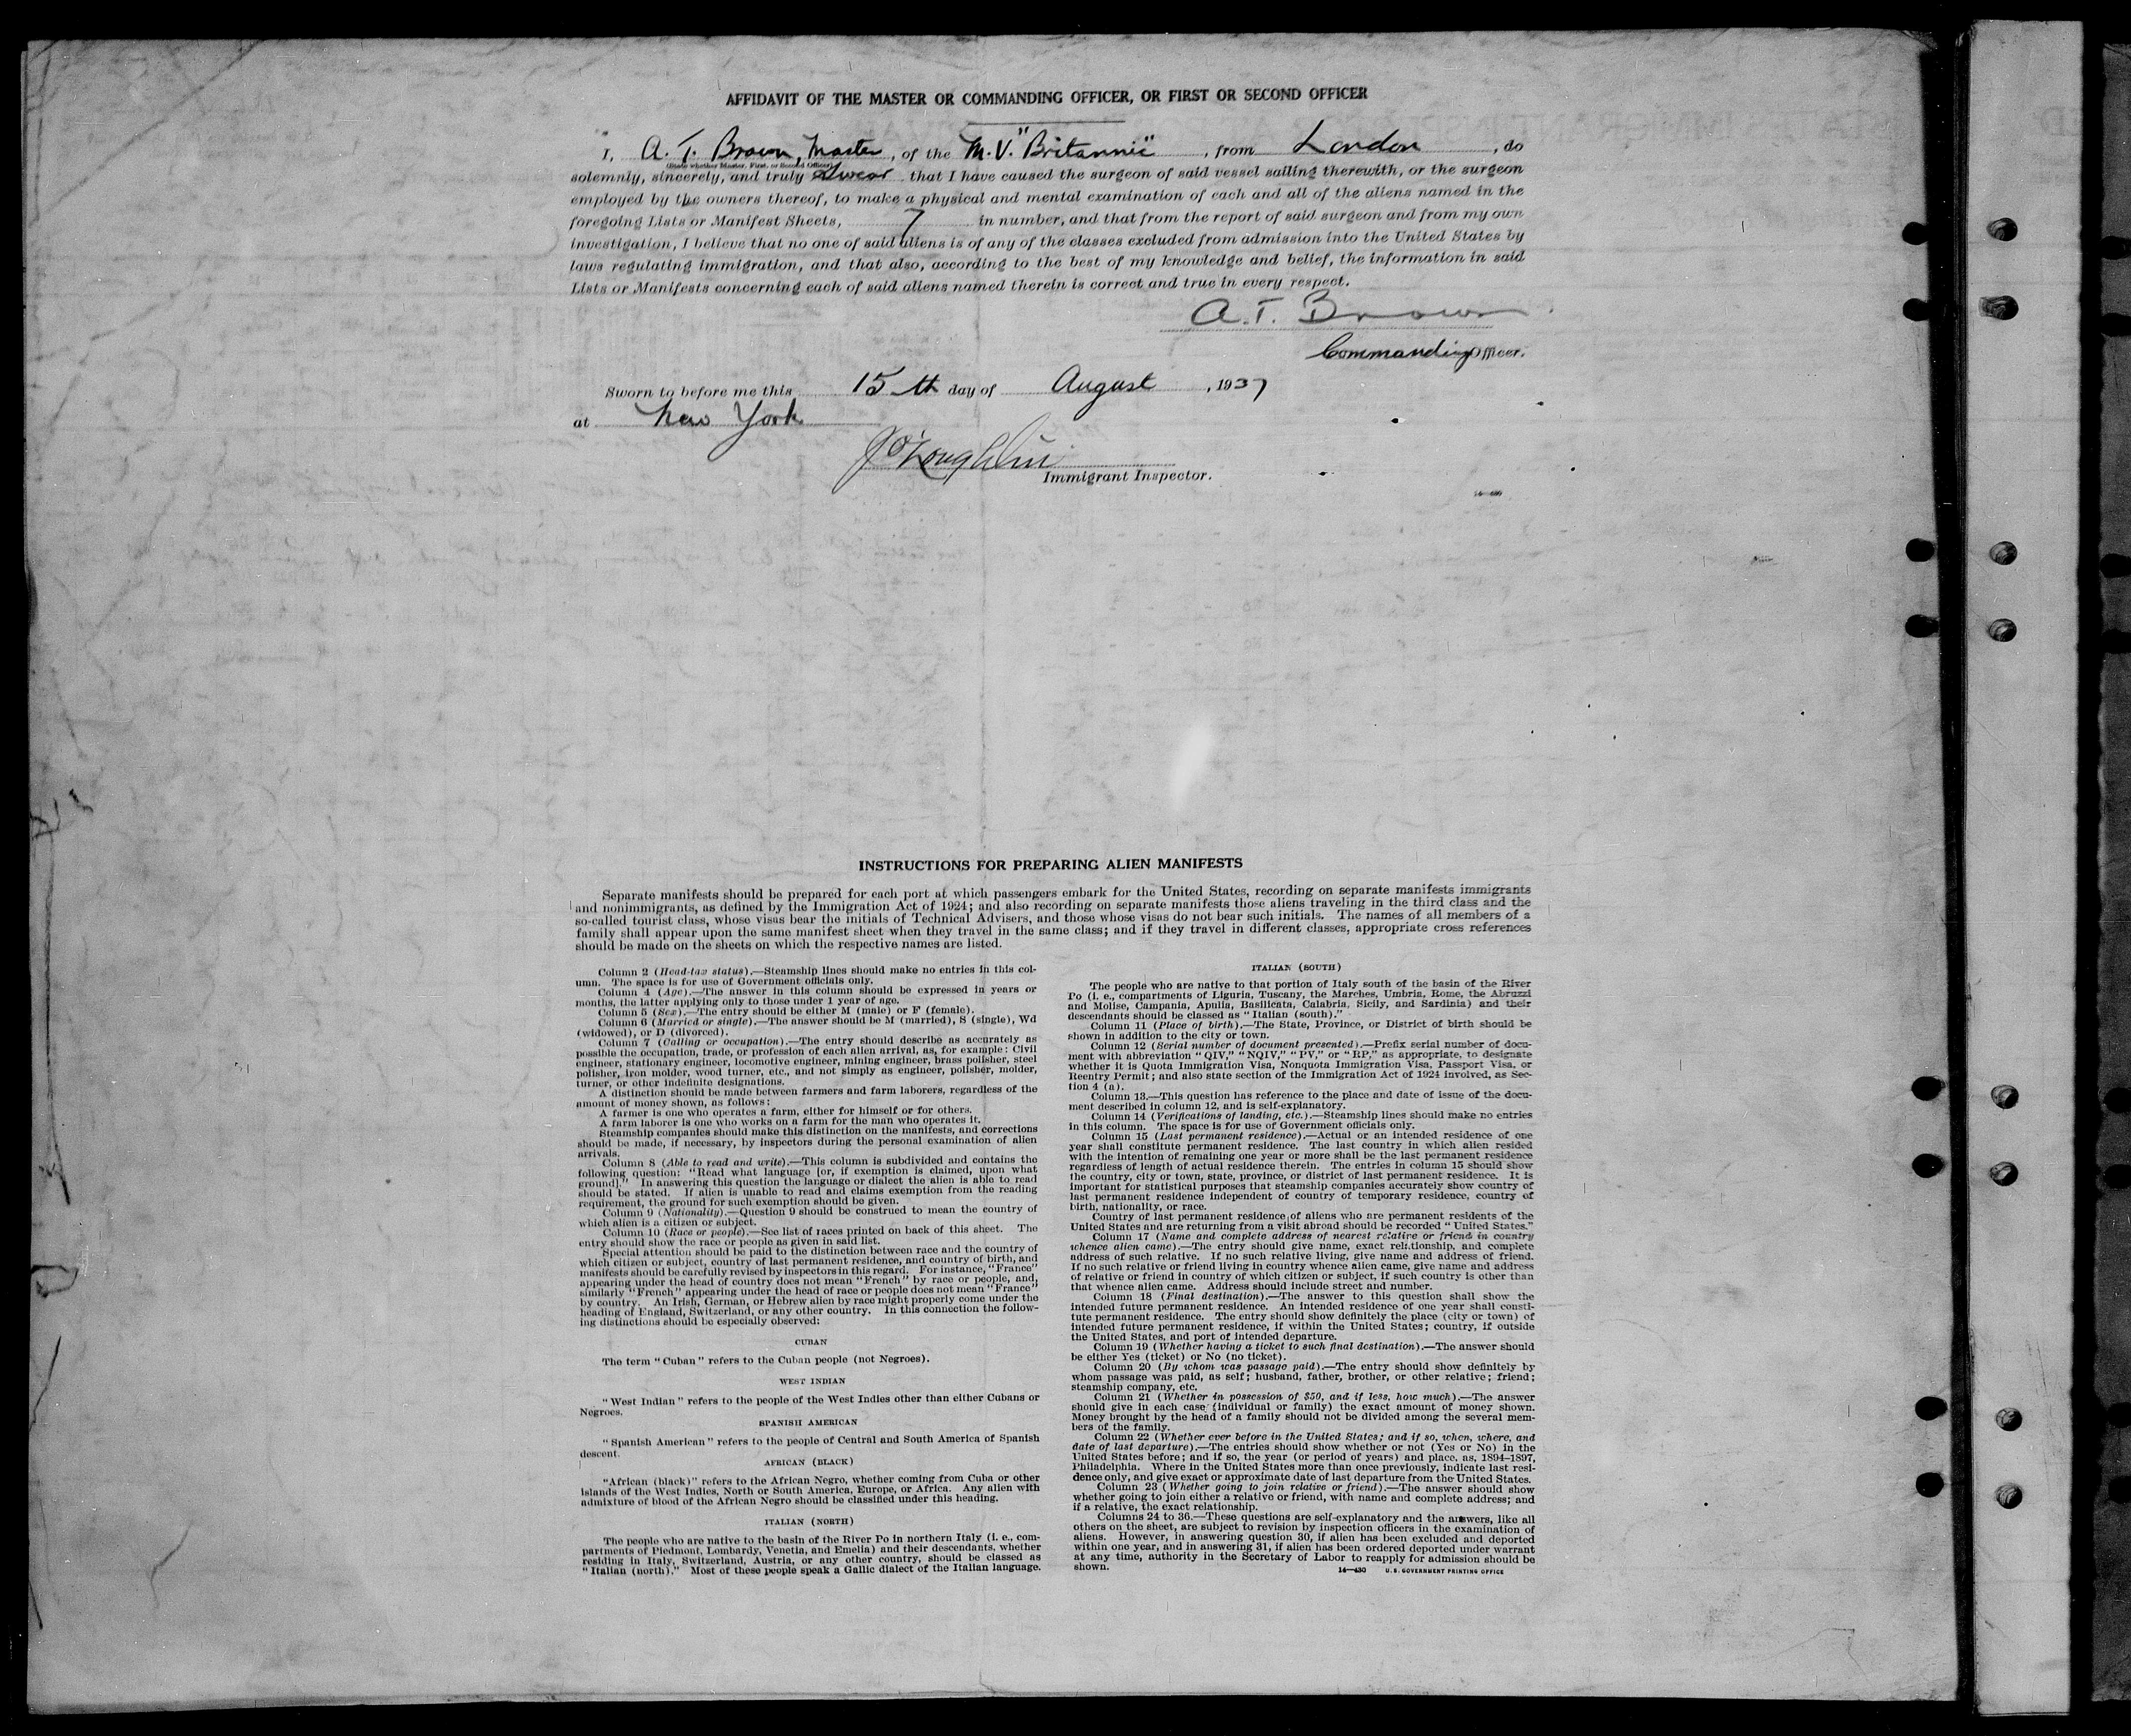 AFFIDAVIT OF THE MASTER OR COMMANDING OFFICER, OR FIRST OR SECOND OFFICER
I, A. T. Brown, Master, of the M.V. "Britannic", from London, do
(State whether Master, First, or Second Officer)
solemnly, sincerely, and truly swear that I have caused the surgeon of said vessel sailing therewith, or the surgeon
employed by the owners thereof, to make a physical and mental examination of each and all of the aliens named in the
foregoing Lists or Manifest Sheets, 7 in number, and that from the report of said surgeon and from my own
investigation, I believe that no one of said aliens is of any of the classes excluded from admission into the United States by
laws regulating immigration, and that also, according to the best of my knowledge and belief, the information in said
Lists or Manifests concerning each of said aliens named therein is correct and true in every respect.
A. T. Brown
Commanding Officer.
Sworn to before me this 15th day of August, 1937
at New York
J O'Loughlin
Immigrant Inspector.
14—430
INSTRUCTIONS FOR PREPARING ALIEN MANIFESTS
Separate manifests should be prepared for each port at which passengers embark for the United States, recording on separate manifests immigrants
and nonimmigrants, as defined by the Immigration Act of 1924; and also recording on separate manifests those aliens traveling in the third class and the
so-called tourist class, whose visas bear the initials of Technical Advisers, and those whose visas do not bear such initials. The names of all members of a
family shall appear upon the same manifest sheet when they travel in the same class; and if they travel in different classes, appropriate cross references
should be made on the sheets on which the respective names are listed.
Column 2 (Head-tax status).—Steamship lines should make no entries in this col-
umn. The space is for use of Government officials only.
Column 4 (Age).—The answer in this column should be expressed in years or
months, the latter applying only to those under 1 year of age.
Column 5 (Sex).—The entry should be either M (male) or F (female).
Column 6 (Married or single).—The answer should be M (married), S (single), Wd
(widowed), or D (divorced).
Column 7 (Calling or occupation).—The entry should describe as accurately as
possible the occupation, trade, or profession of each alien arrival, as, for example: Civil
engineer, stationary engineer, locomotive engineer, mining engineer, brass polisher, steel
polisher, iron molder, wood turner, etc., and not simply as engineer, polisher, molder,
turner, or other indefinite designations.
A distinction should be made between farmers and farm laborers, regardless of the
amount of money shown, as follows:
A farmer is one who operates a farm, either for himself or for others.
A farm laborer is one who works on a farm for the man who operates it.
Steamship companies should make this distinction on the manifests, and corrections
should be made, if necessary, by inspectors during the personal examination of alien
arrivals.
Column 8 (Able to read and write).—This column is subdivided and contains the
following question: "Read what language [or, if exemption is claimed, upon what
ground]." In answering this question the language or dialect the alien is able to read
should be stated. If alien is unable to read and claims exemption from the reading
requirement, the ground for such exemption should be given.
Column 9 (Nationality).—Question 9 should be construed to mean the country of
which alien is a citizen or subject.
Column 10 (Race or people).—See list of races printed on back of this sheet. The
entry should show the race or people as given in said list.
Special attention should be paid to the distinction between race and the country of
which citizen or subject, country of last permanent residence, and country of birth, and
manifests should be carefully revised by inspectors in this regard. For instance, "France"
appearing under the head of country does not mean "French" by race or people, and,
similarly "French" appearing under the head of race or people does not mean "France"
by country. An Irish, German, or Hebrew alien by race might properly come under the
heading of England, Switzerland, or any other country. In this connection the follow-
ing distinctions should be especially observed:
CUBAN
The term "Cuban" refers to the Cuban people (not Negroes).
WEST INDIAN
"West Indian" refers to the people of the West Indies other than either Cubans or
Negroes.
SPANISH AMERICAN
"Spanish American" refers to the people of Central and South America of Spanish
descent.
AFRICAN (BLACK)
"African (black)" refers to the African Negro, whether coming from Cuba or other
islands of the West Indies, North or South America, Europe, or Africa. Any alien with
admixture of blood of the African Negro should be classified under this heading.
ITALIAN (NORTH)
The people who are native to the basin of the River Po in northern Italy (i. e., com-
partments of Piedmont, Lombardy, Venetia, and Emelia) and their descendants, whether
residing in Italy, Switzerland, Austria, or any other country, should be classed as
"Italian (north)." Most of these people speak a Gallic dialect of the Italian language.
ITALIAN (SOUTH)
The people who are native to that portion of Italy south of the basin of the River
Po (i. e., compartments of Liguria, Tuscany, the Marches, Umbria, Rome, the Abruzzi
and Molise, Campania, Apulia, Basilicata, Calabria, Sicily, and Sardinia) and their
descendants should be classed as "Italian (south)."
Column 11 (Place of birth).—The State, Province, or District of birth should be
shown in addition to the city or town.
Column 12 (Serial number of document presented).—Prefix serial number of docu-
ment with abbreviation "QIV," "NQIV," "PV," or "RP," as appropriate, to designate
whether it is Quota Immigration Visa, Nonquota Immigration Visa, Passport Visa, or
Reentry Permit; and also state section of the Immigration Act of 1924 involved, as Sec-
tion 4 (a).
Column 13.—This question has reference to the place and date of issue of the docu-
ment described in column 12, and is self-explanatory.
Column 14 (Verifications of landing, etc.).—Steamship lines should make no entries
in this column. The space is for use of Government officials only.
Column 15 (Last permanent residence).—Actual or an intended residence of one
year shall constitute permanent residence. The last country in which alien resided
with the intention of remaining one year or more shall be the last permanent residence
regardless of length of actual residence therein. The entries in column 15 should show
the country, city or town, state, province, or district of last permanent residence. It is
important for statistical purposes that steamship companies accurately show country of
last permanent residence independent of country of temporary residence, country of
birth, nationality, or race.
Country of last permanent residence of aliens who are permanent residents of the
United States and are returning from a visit abroad should be recorded "United States."
Column 17 (Name and complete address of nearest relative or friend in country
whence alien came).—The entry should give name, exact relationship, and complete
address of such relative. If no such relative living, give name and address of friend.
If no such relative or friend living in country whence alien came, give name and address
of relative or friend in country of which citizen or subject, if such country is other than
that whence alien came. Address should include street and number.
Column 18 (Final destination).—The answer to this question shall show the
intended future permanent residence. An intended residence of one year shall consti-
tute permanent residence. The entry should show definitely the place (city or town) of
intended future permanent residence, if within the United States; country, if outside
the United States, and port of intended departure.
Column 19 (Whether having a ticket to such final destination).—The answer should
be either Yes (ticket) or No (no ticket).
Column 20 (By whom was passage paid).—The entry should show definitely by
whom passage was paid, as self; husband, father, brother, or other relative; friend;
steamship company, etc.
Column 21 (Whether in possession of $50, and if less, how much).—The answer
should give in each case (individual or family) the exact amount of money shown.
Money brought by the head of a family should not be divided among the several mem-
bers of the family.
Column 22 (Whether ever before in the United States; and if so, when, where, and
date of last departure).—The entries should show whether or not (Yes or No) in the
United States before; and if so, the year (or period of years) and place, as, 1894–1897,
Philadelphia. Where in the United States more than once previously, indicate last resi-
dence only, and give exact or approximate date of last departure from the United States.
Column 23 (Whether going to join relative or friend).—The answer should show
whether going to join either a relative or friend, with name and complete address; and
if a relative, the exact relationship.
Columns 24 to 36.—These questions are self-explanatory and the answers, like all
others on the sheet, are subject to revision by inspection officers in the examination of
aliens. However, in answering question 30, if alien has been excluded and deported
within one year, and in answering 31, if alien has been ordered deported under warrant
at any time, authority in the Secretary of Labor to reapply for admission should be
shown.
14—430 U.S. GOVERNMENT PRINTING OFFICE